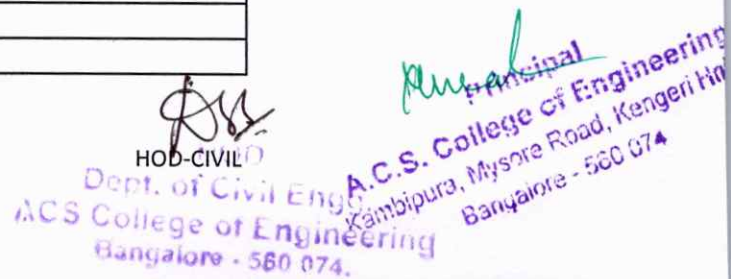 HOD-CIVIL
HOD
Dept. of Civil Engg
ACS College of Engineering
Bangalore - 560 074.
Principal
A.C.S. College of Engineering
Kambipura, Mysore Road, Kengeri
Bangalore - 560 074